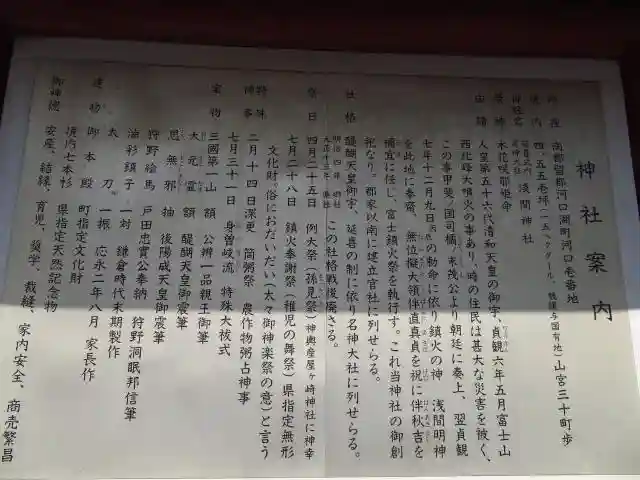 神社案内
所在 南都留郡河口湖町河口壱番地
境内 四、五五壱坪(一・五ヘクタール、他縁与国有地)山宮三十町歩
浅間神社
祭神 木花咲耶姫命
由緒 人皇第五十六代清和天皇の御宇、貞観六年五月富士山
西北麓大噴火の事あり、時の住民は甚大な災害を被く、
この事甲斐ノ国司橘ノ末茂公より朝廷に奏上、翌貞観
七年十二月九日の勅命に依り鎮火の神 浅間明神
を此地に奉斎、無位擬大領伴直真貞を祝に伴秋吉を
禰宜に任し、富士鎮火祭を執行す。これ当神社の御創
祀なり。郡家以南に建立官社に列せらる。
社格 醍醐天皇御宇、延喜の制に依り名神大社に列せらる。
この社格戦後廃さる。
祭日 四月二十五日 例大祭(孫見祭)神輿産屋ヶ崎神社に神幸
七月二十八日 鎮火奉謝祭(稚児の舞祭)県指定無形
文化財。俗におだいだい(太々御神楽祭の意)と言う
特殊神事 二月十四日深更、筒粥祭 農作物粥占神事
七月三十一日 身曽岐流 特殊大祓式
宝物 三國第一山 額 公辨一品親王御筆
大元霊 額 醍醐天皇御宸筆
思無邪 抽 後陽成天皇御宸筆
狩野絵馬 戸田忠實公奉納 狩野洞眠邦信筆
油彩額子 一対 鎌倉時代末期製作
太刀 一振 応永二年八月 家長作
建物 御本殿 町指定文化財
境内七本杉 県指定天然記念物
御神徳 安産、結縁、育児、奨学、裁縫、家内安全、商売繁昌